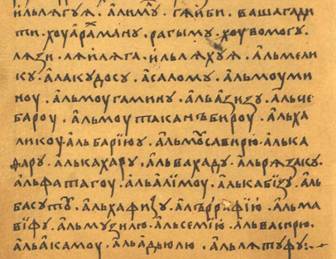 илѧгуѧ. алиму. гаиби. вашагади
ти. хоуараману. рагыму. хоувомогу.
лѧзи. лѧилѧга. ильлѧхуѧ. альмели
ку. алакудосу. асаломъ. альмоуми
ноу. альмоугамину. альвазизу. альче
бароу. альмоутаканъбироу. альха
ликоу альбарїюу. альмоусавирю. алька
фару. алькахару. альвахаду. альрѧзаку.
альфаттагоу. альалїмоу. алькабїзу. аль
басутъ. альхафизу. альррѧфїю. альма
вїфу. альмузилю. альсемїю. альвасирю.
альаїкамоу. альадьлю. альлѧтуфу:~